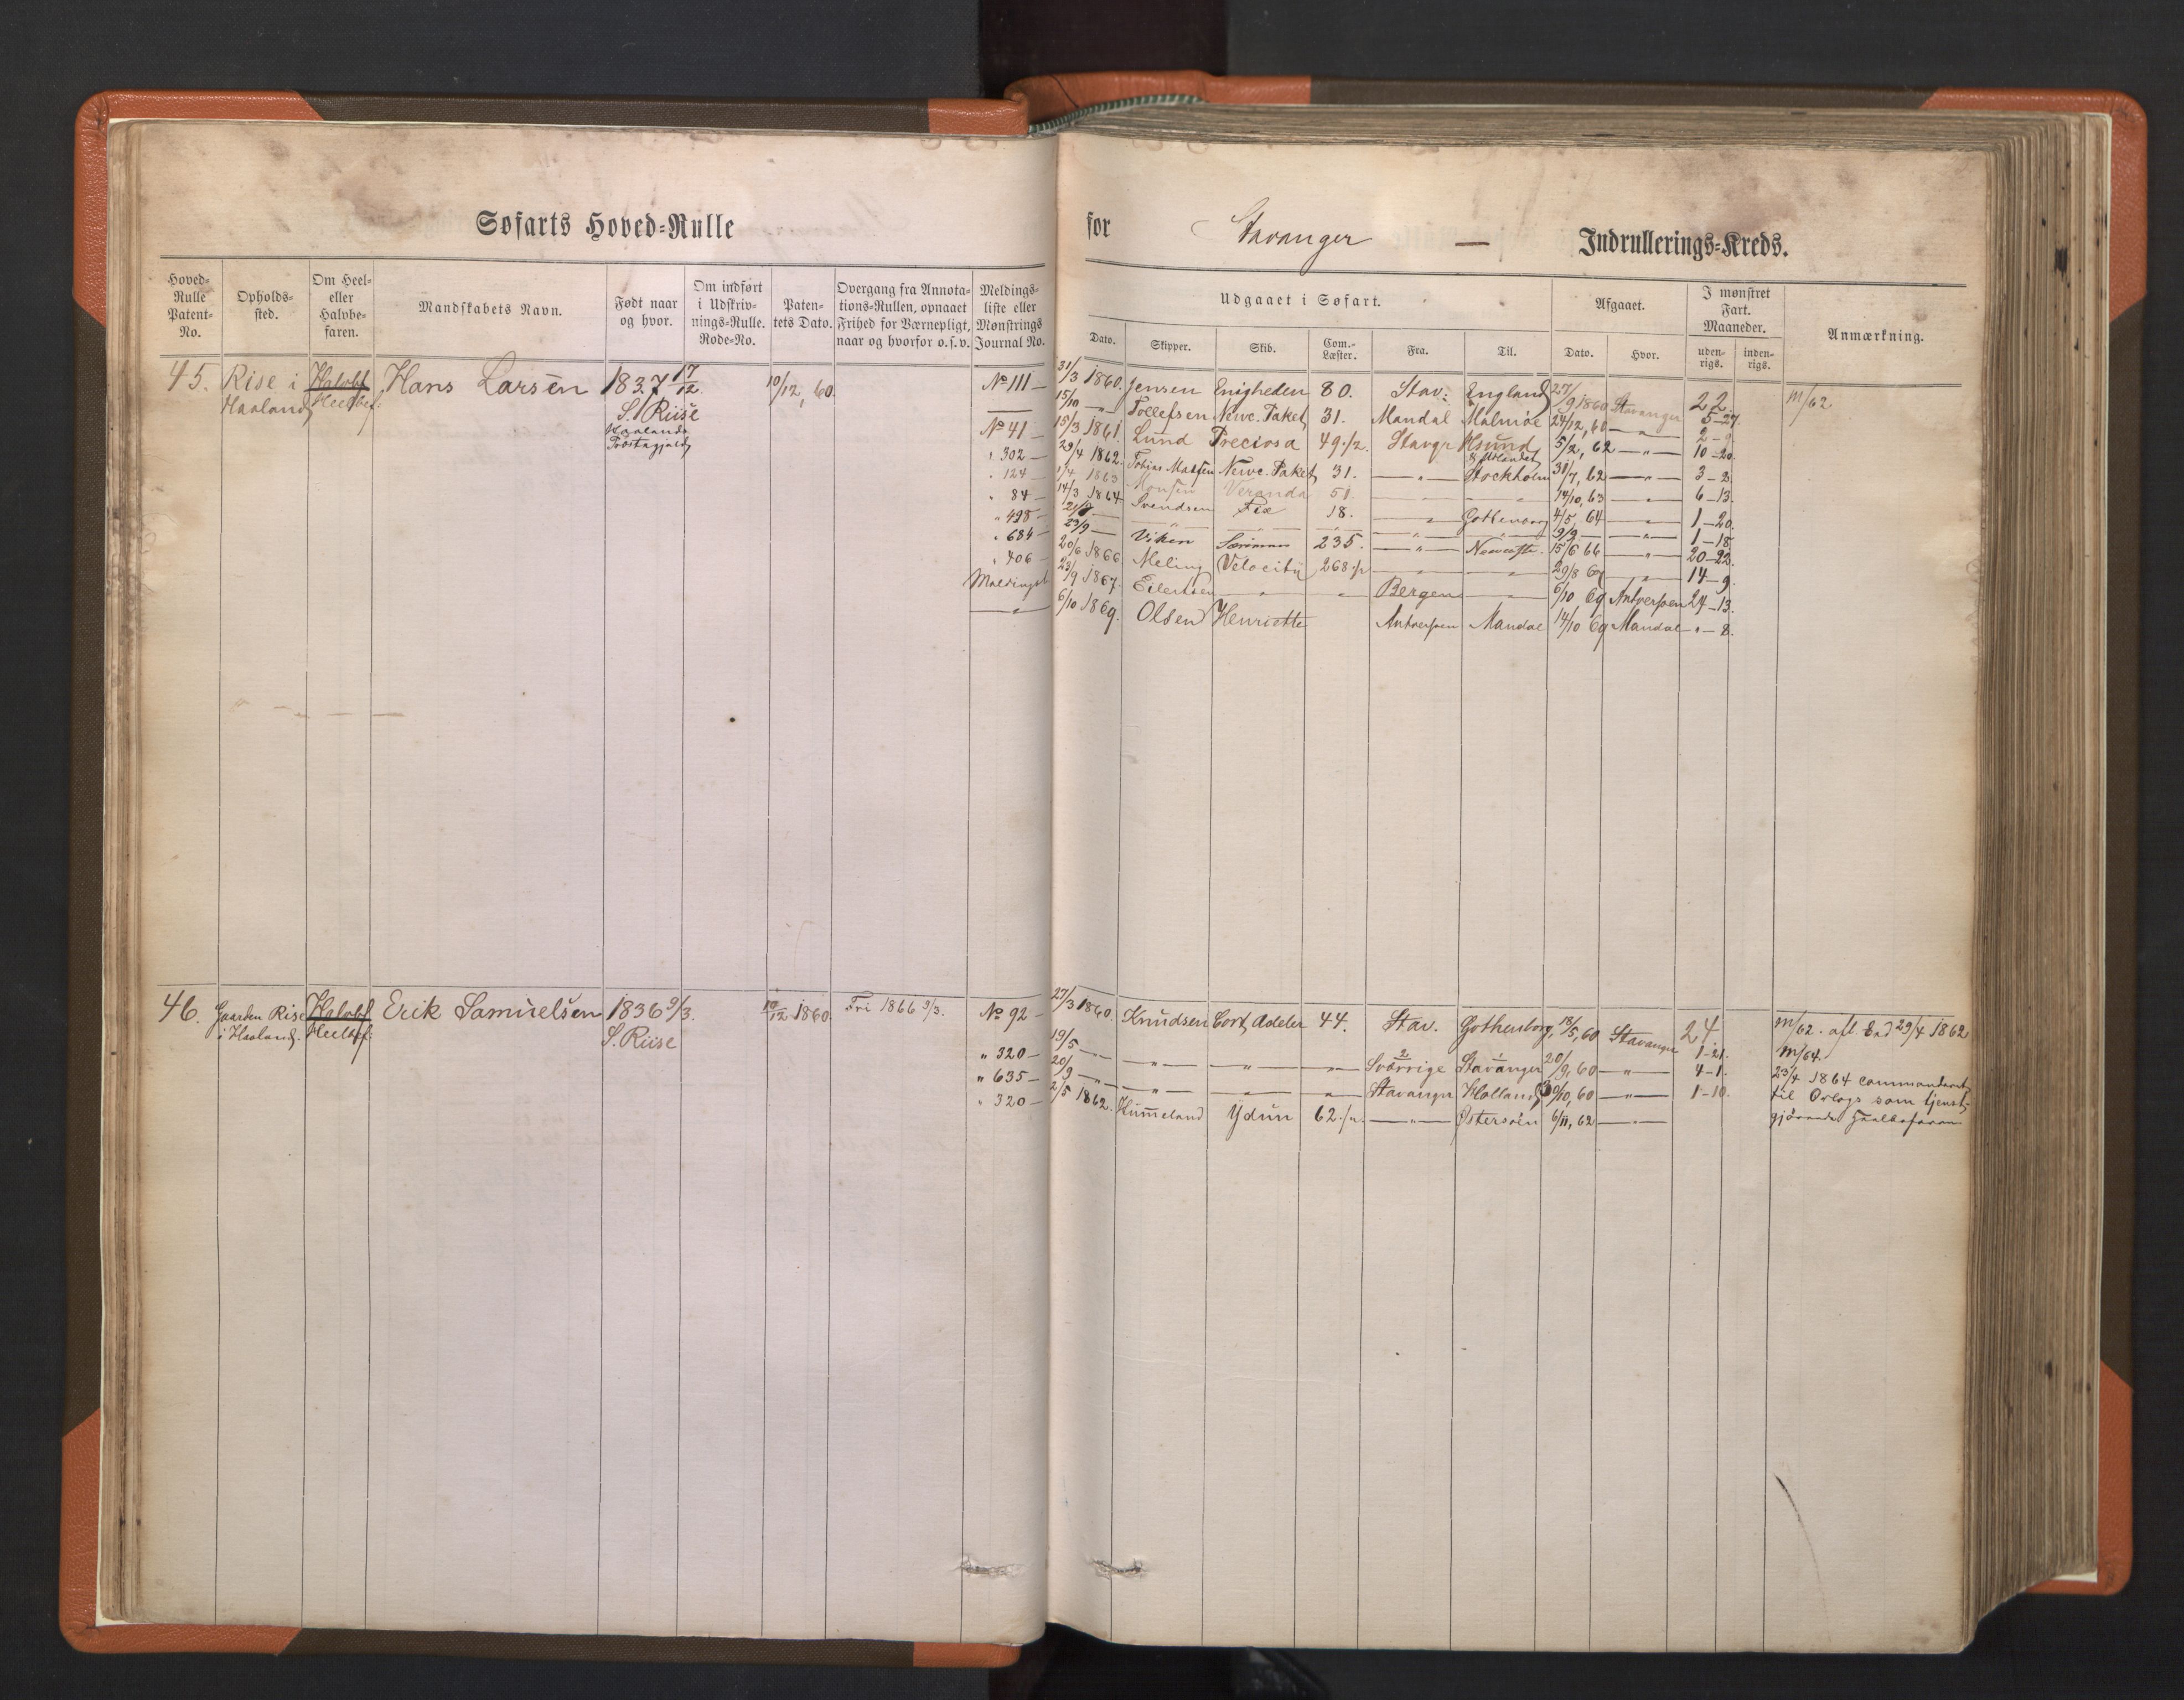 Søfarts Hoved-Rulle
for Stavanger — Indrullerings-Kreds.
Hoved-Rulle Patent-No.
Opholds-sted.
Om Heel- eller Halvbe-faren.
Mandskabets Navn.
Født naar og hvor.
Om indført i Udskriv-nings-Rulle. Rode-No.
Paten-tets Dato.
Overgang fra Annota-tions-Rullen, opnaaet Frihed for Værnepligt, naar og hvorfor o.s.v.
Meldings-liste eller Mønstrings Journal No.
Udgaaet i Søfart.
Dato. Skipper. Skib. Com.-Læster. Fra. Til.
Afgaaet.
Dato. Hvor.
I mønstret Fart. Maaneder.
uden-rigs. inden-rigs.
Anmærkning.
45. Rise i Haaland Halvbf Heelbef: Hans Larsen 1837 17/12. S. Riise Haalands Præstegjeld 10/12, 60.
No 111 — 31/3 1860. Jensen Enigheden 80. Stav: England 27/9 1860 Stavanger 22. m/62
— 15/10 —„— Tollefsen Newc. Paket 31. Mandal Malmøe 24/12, 60 —„— 5-27.
No 41 — 15/3 1861. Lund Preciosa 49 1/2 Stavgr 5/2, 62 —„— 2-9
" 302 — 29/4 1862. Tobias Newc. Paket 31. —„— Stockholm 31/7, 62 —„— 10-20.
" 124 — 1/4 1863 Monsen Veranda 51. 14/10, 63 —„— 3-2.
" 84 — 14/3 1864 Svendsen Fix 18. —„— Gothenborg 4/5, 64 —„— 6-13.
" 498 — 21/7 — 9/9 — 1-20.
" 684 — 23/9 — Viken 235. —„— Newcastle. 15/6 66 —„— 1-18
" 406 — 20/6 1866. Meling Velocity 268 1/2 —„— 29/8 67 —„— 20-22.
Meldingsl 23/9 1867. Eilertsen —„— —„— Bergen —„— 6/10 69 Antverpen 14-9.
—„— 6/10 1869. Olsen Henriette Antverpen Mandal 14/10 69 Mandal 24-13.
" - 8.
46. Gaarden Rise i Haaland. Halvbf Heelbef: Erik Samuelsen 1836 9/3. S. Riise 10/12 1860. Fri 1866 9/3.
No 92 — 27/3 1860. Knudsen Cort Adeler 44. Stav. Gothenborg, 18/5, 60 Stavanger 24. m/62. afl. Eed 29/4 1862
" 320 — 19/5 —„— —„— —„— —„— Sverrige Stavanger 20/9, 60 —„— 1-21. m/64.
" 635 — 20/9 —„— —„— —„— —„— Stavanger Holland, 30/10, 60 —„— 4-1. 23/4 1864 commanderet
" 320 — 2/5 1862. Hummeland Ydun 62 1/2. —„— Østersøen 6/11, 62 —„— 1-10. til Orlogs som tjenst-
gjørende